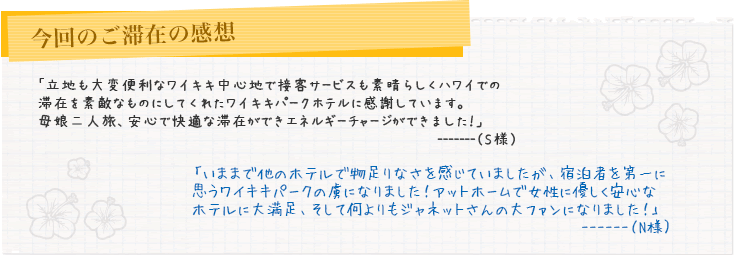 今回のご滞在の感想
「立地も大変便利なワイキキ中心地で接客サービスも素晴らしくハワイでの
滞在を素敵なものにしてくれたワイキキパークホテルに感謝しています。
母娘二人旅、安心で快適な滞在ができエネルギーチャージができました！」
-------（S様）
「いままで他のホテルで物足りなさを感じていましたが、宿泊者を第一に
思うワイキキパークの虜になりました！アットホームで女性に優しく安心な
ホテルに大満足、そして何よりもジャネットさんの大ファンになりました！」
------（N様）